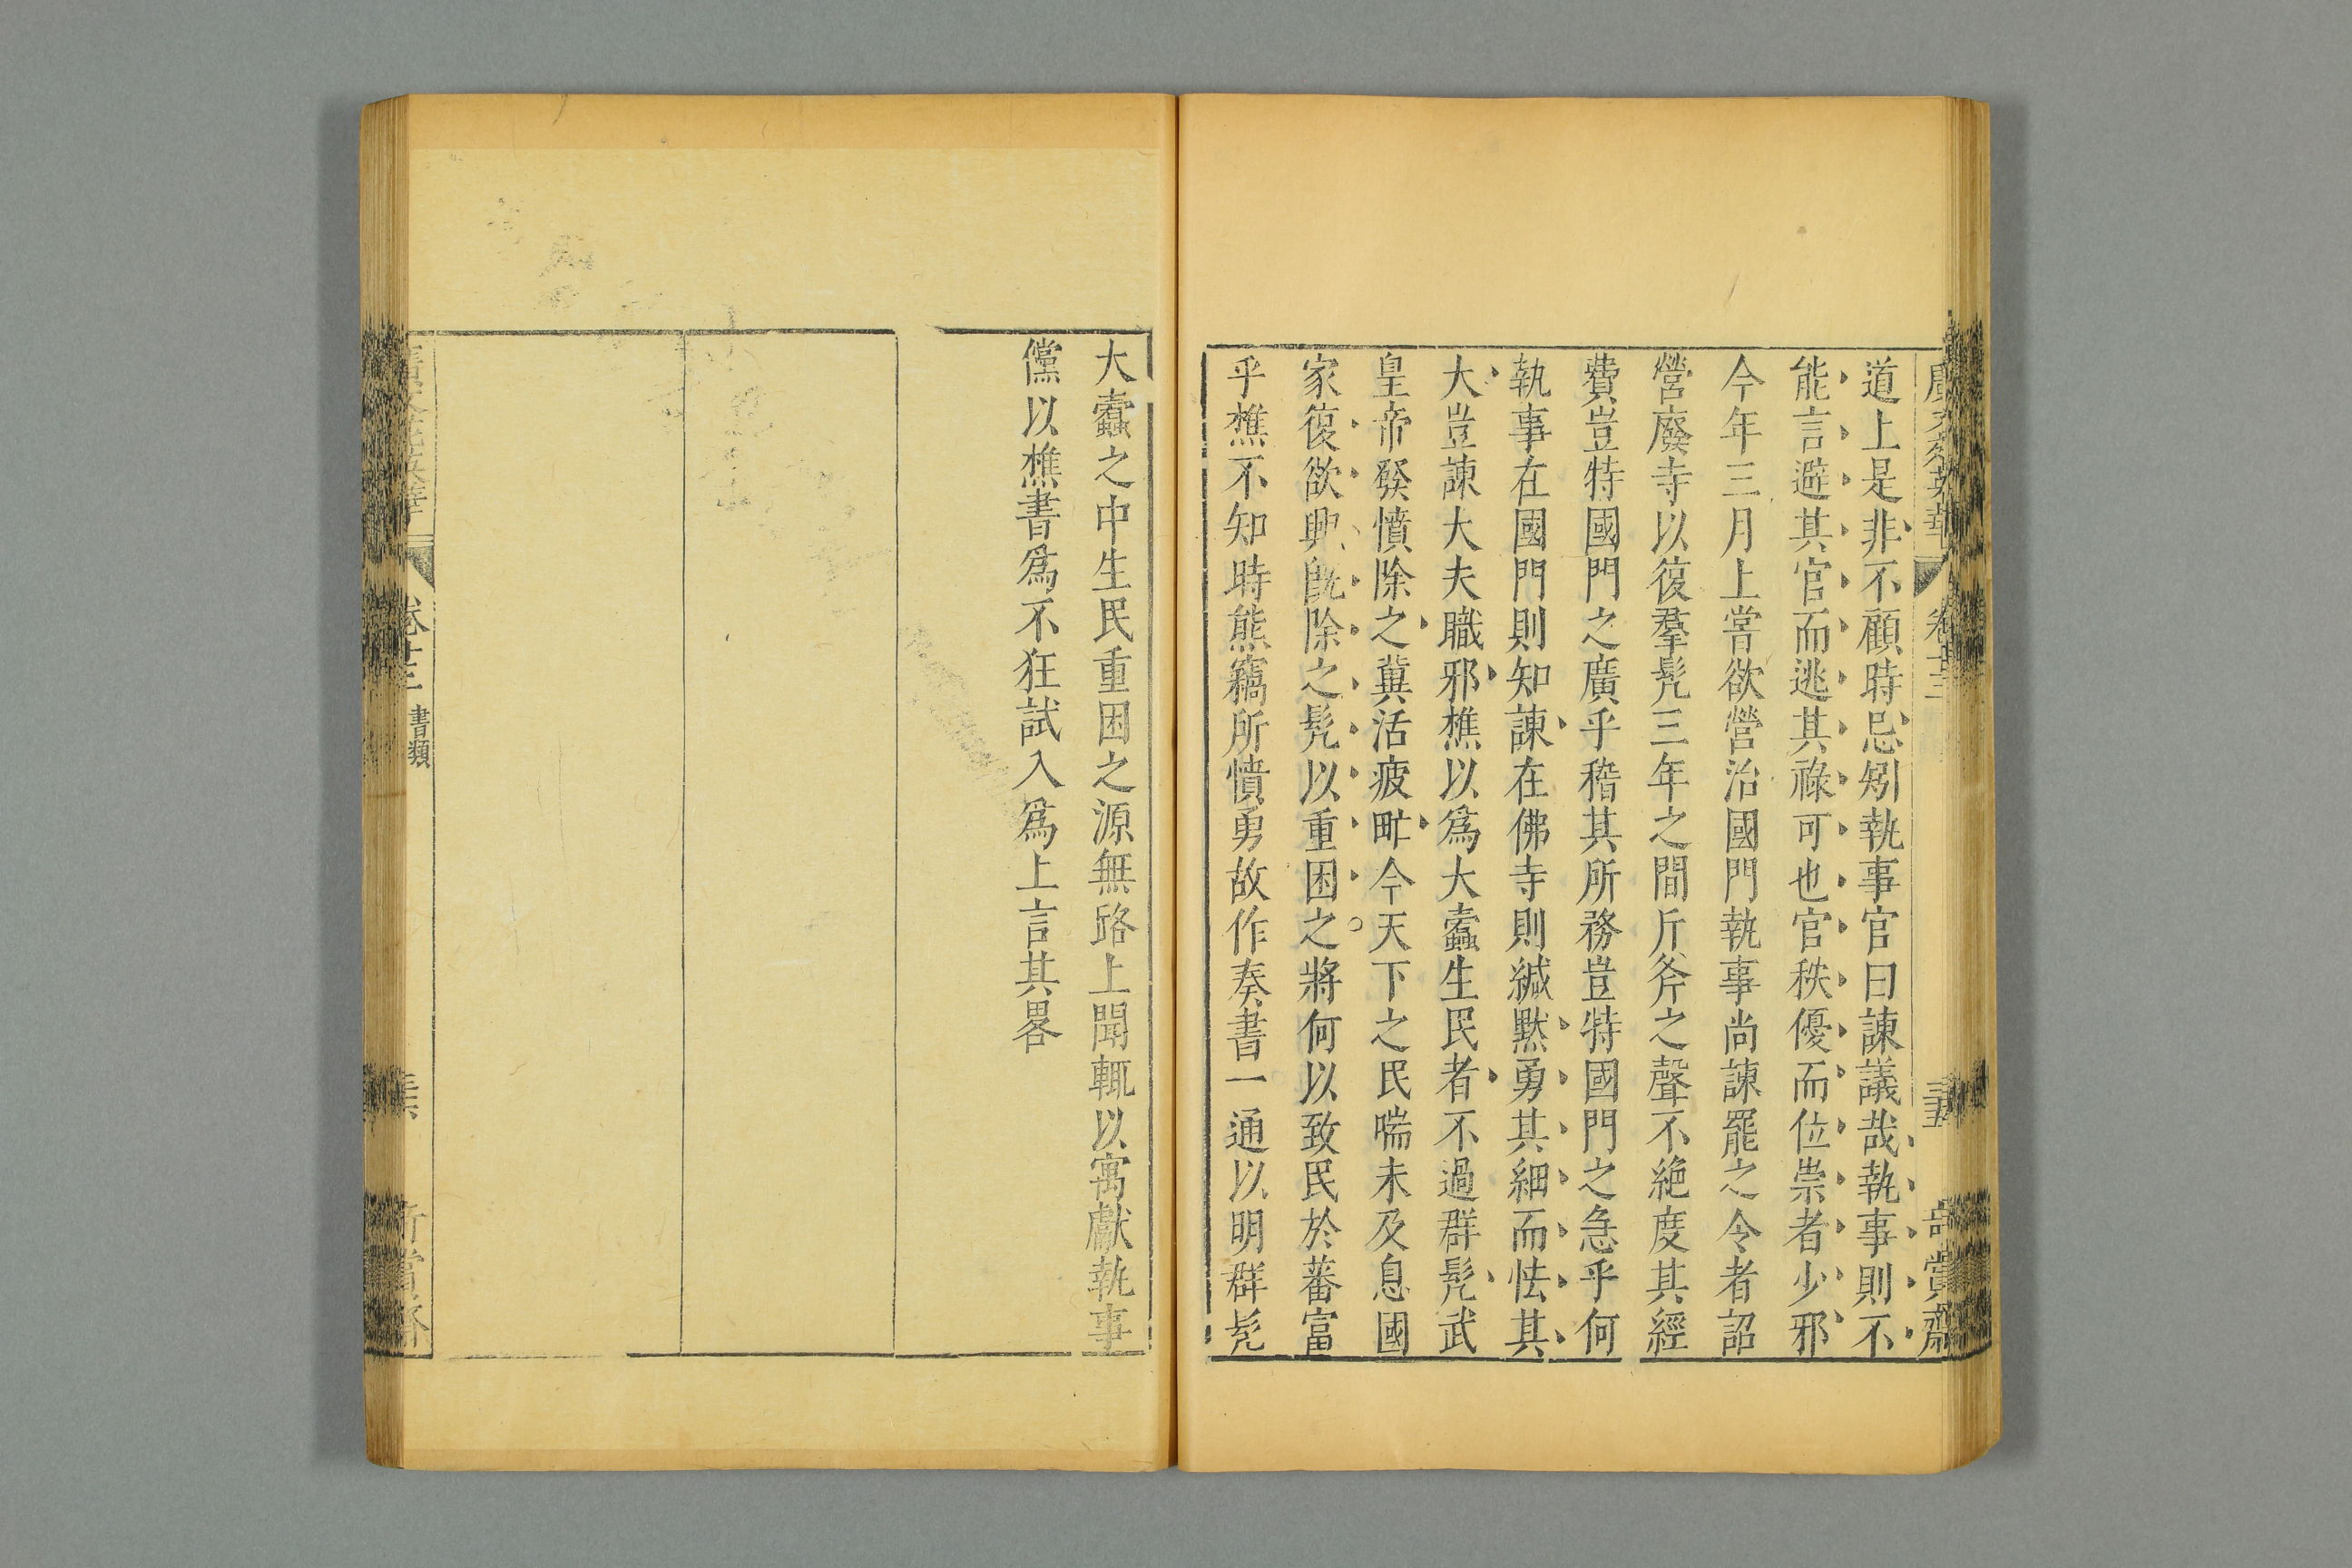 道上是非不顧時忌矧執事官曰諫議哉執事則不
能言避其官而逃其祿可也官秩優而位崇者少邪
今年三月上嘗欲營治國門執事尚諫罷之令者詔
營廢寺以復羣髠三年之間斤斧之聲不絶度其經
費豈特國門之廣乎稽其所務豈特國門之急乎何
執事在國門則知諫在佛寺則緘默勇其細而怯其
大豈諫大夫職邪樵以爲大蠹生民者不過群髠武
皇帝發憤除之冀活疲甿今天下之民喘未及息國
家復欲興旣除之髠以重困之將何以致民於蕃富
乎樵不知時態竊所憤勇故作奏書一通以明群髠
大蠹之中生民重困之源無路上聞輒以寓獻執事
儻以樵書爲不狂試入爲上言其畧
卷十三 書類